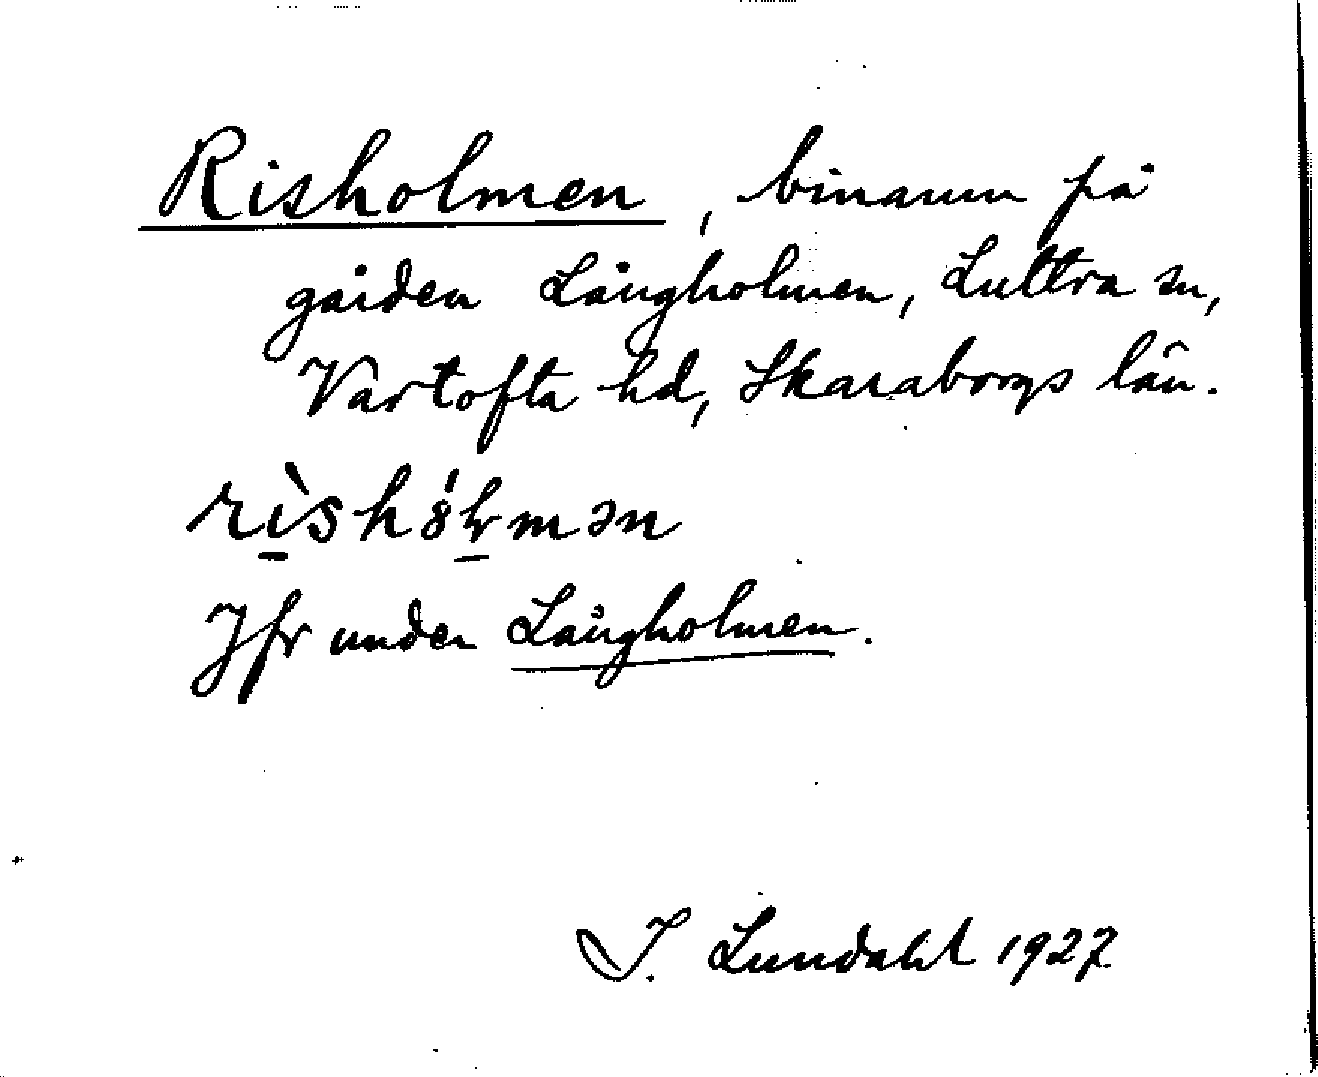 Risholmen, binamn på
gården Långholmen, Luttra sn,
Vartofta hd, Skaraborgs län.
Jfr under Långholmen.
J. Lundahl 1927